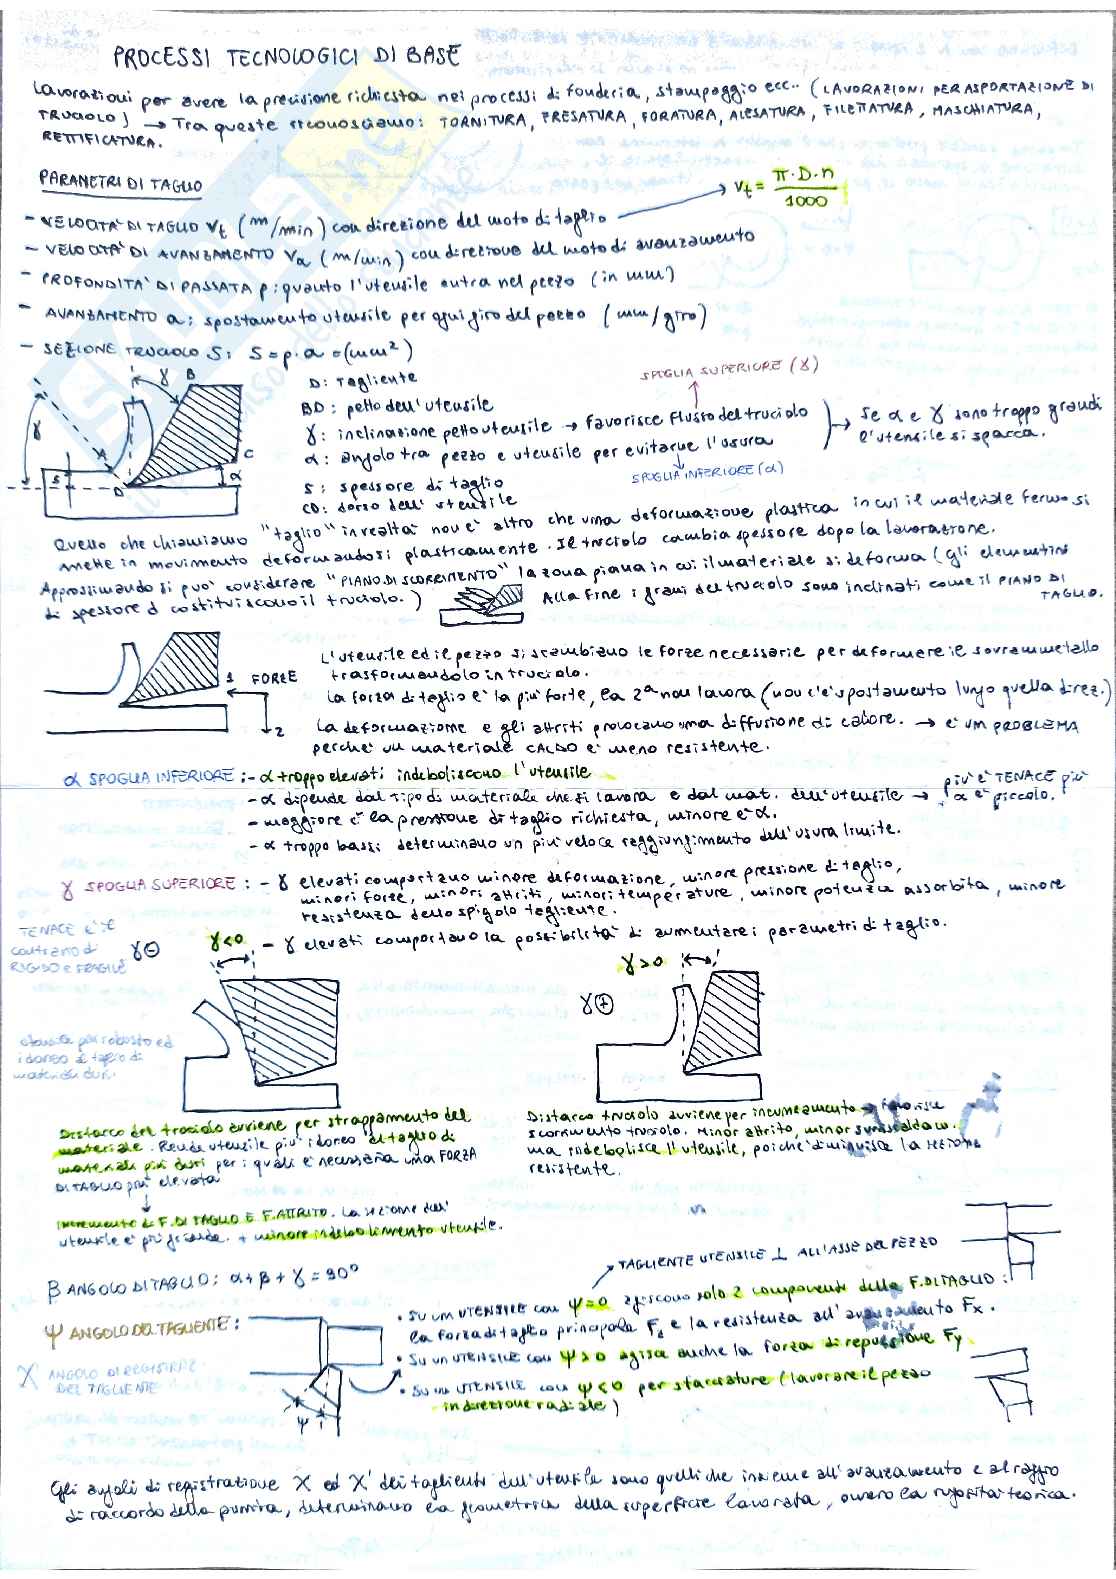 PROCESSI TECNOLOGICI DI BASE
Lavorazioni per avere la precisione richiesta nei processi di fonderia, stampaggio ecc.. (LAVORAZIONI PER ASPORTAZIONE DI
TRUCIOLO) → Tra queste riconosciamo: TORNITURA, FRESATURA, FORATURA, ALESATURA, FILETTATURA, MASCHIATURA,
RETTIFICATURA.
PARAMETRI DI TAGLIO
Vt = π·D·n / 1000
- VELOCITA' DI TAGLIO Vt (m/min) con direzione del moto di taglio
- VELOCITA' DI AVANZAMENTO Va (m/min) con direzione del moto di avanzamento
- PROFONDITA' DI PASSATA p: quanto l'utensile entra nel pezzo (in mm)
- AVANZAMENTO a: spostamento utensile per ogni giro del pezzo (mm/giro)
- SEZIONE TRUCIOLO S: S = p·a = (mm²)
γ B
γ A S D C α
D: tagliente
BD: petto dell'utensile
SPOGLIA SUPERIORE (γ)
γ: inclinazione petto utensile → favorisce flusso del truciolo
α: angolo tra pezzo e utensile per evitarne l'usura
SPOGLIA INFERIORE (α)
→ Se α e γ sono troppo grandi
l'utensile si spacca.
S: spessore di taglio
CD: dorso dell'utensile
Quello che chiamiamo "taglio" in realtà non è altro che una deformazione plastica in cui il materiale fermo si
mette in movimento deformandosi plasticamente. Il truciolo cambia spessore dopo la lavorazione.
Approssimando si può considerare "PIANO DI SCORRIMENTO" la zona piana in cui il materiale si deforma (gli elementini
di spessore d costituiscono il truciolo.)
Alla fine i grani del truciolo sono inclinati come il PIANO DI
TAGLIO.
1 FORZE
2
L'utensile ed il pezzo si scambiano le forze necessarie per deformare il sovrammetallo
trasformandolo in truciolo.
La forza di taglio è la più forte, la 2ª non lavora (non c'è spostamento lungo quella direz.)
La deformazione e gli attriti provocano una diffusione di calore. → è UN PROBLEMA
perché un materiale CALDO è meno resistente.
α SPOGLIA INFERIORE: - α troppo elevati indeboliscono l'utensile
- α dipende dal tipo di materiale che si lavora e dal mat. dell'utensile → più è TENACE più
α è piccolo.
- maggiore è la pressione di taglio richiesta, minore è α.
- α troppo bassi determinano un più veloce raggiungimento dell'usura limite.
γ SPOGLIA SUPERIORE: - γ elevati comportano minore deformazione, minore pressione di taglio,
minori forze, minori attriti, minori temperature, minore potenza assorbita, minore
resistenza dello spigolo tagliente.
- γ elevati comportano la possibilità di aumentare i parametri di taglio.
TENACE è il
contrario di
RIGIDO e FRAGILE
γ ⊖
γ<0
γ>0
γ ⊕
utensile più robusto ed
idoneo al taglio di
materiali duri.
Distacco del truciolo avviene per strappamento del
materiale. Rende utensile più idoneo al taglio di
materiali più duri per i quali è necessaria una FORZA
DI TAGLIO più elevata
↓
Incremento di F. DI TAGLIO E F. ATTRITO. La sezione dell'
utensile è più grande. + minore indebolimento utensile.
Distacco truciolo avviene per incuneamento → favorisce
scorrimento truciolo. Minor attrito, minor surriscaldam.
ma indebolisce l'utensile, poiché diminuisce la sezione
resistente.
β ANGOLO DI TAGLIO: α+β+γ = 90°
TAGLIENTE UTENSILE ⊥ ALL'ASSE DEL PEZZO
ψ ANGOLO DEL TAGLIENTE:
χ' ANGOLO DI REGISTRAZ.
DEL TAGLIENTE
ψ
• SU UN UTENSILE con ψ=0 agiscono solo 2 componenti della F. DI TAGLIO:
la forza di taglio principale Fz e la resistenza all'avanzamento Fx.
• Su un UTENSILE con ψ>0 agisce anche la forza di repulsione Fy
• Su un UTENSILE con ψ<0 per sfacciature (lavorare il pezzo
in direzione radiale)
Gli angoli di registrazione χ ed χ' dei taglienti dell'utensile sono quelli che insieme all'avanzamento e al raggio
di raccordo della punta, determinano la geometria della superficie lavorata, ovvero la rugosità teorica.